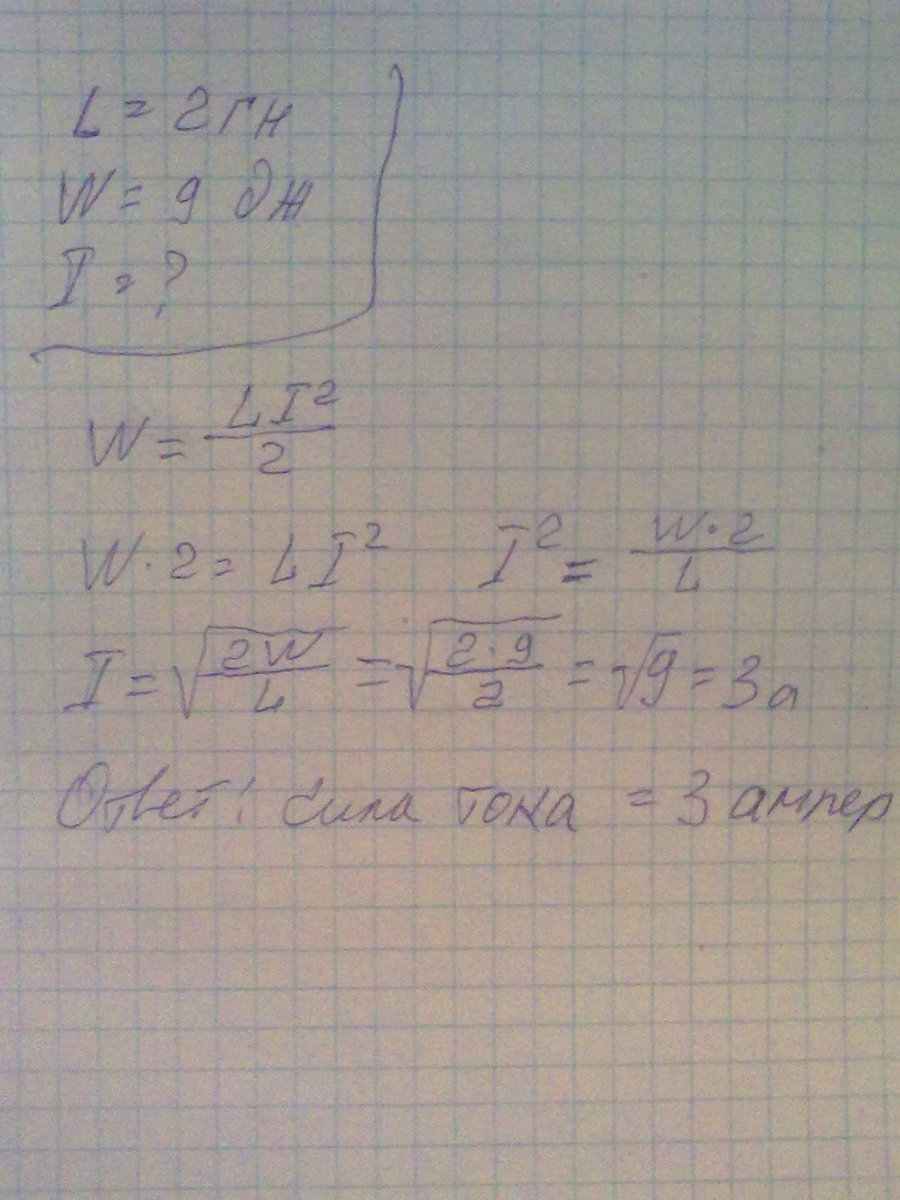 L = 2 гн
W = 9 дж
I = ?
W = LI²/2
W·2 = LI² I² = W·2/L
I = √(2W/L) = √(2·9/2) = √9 = 3а
Ответ: Сила тока = 3 ампер